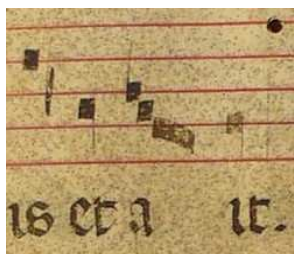 is et a it.